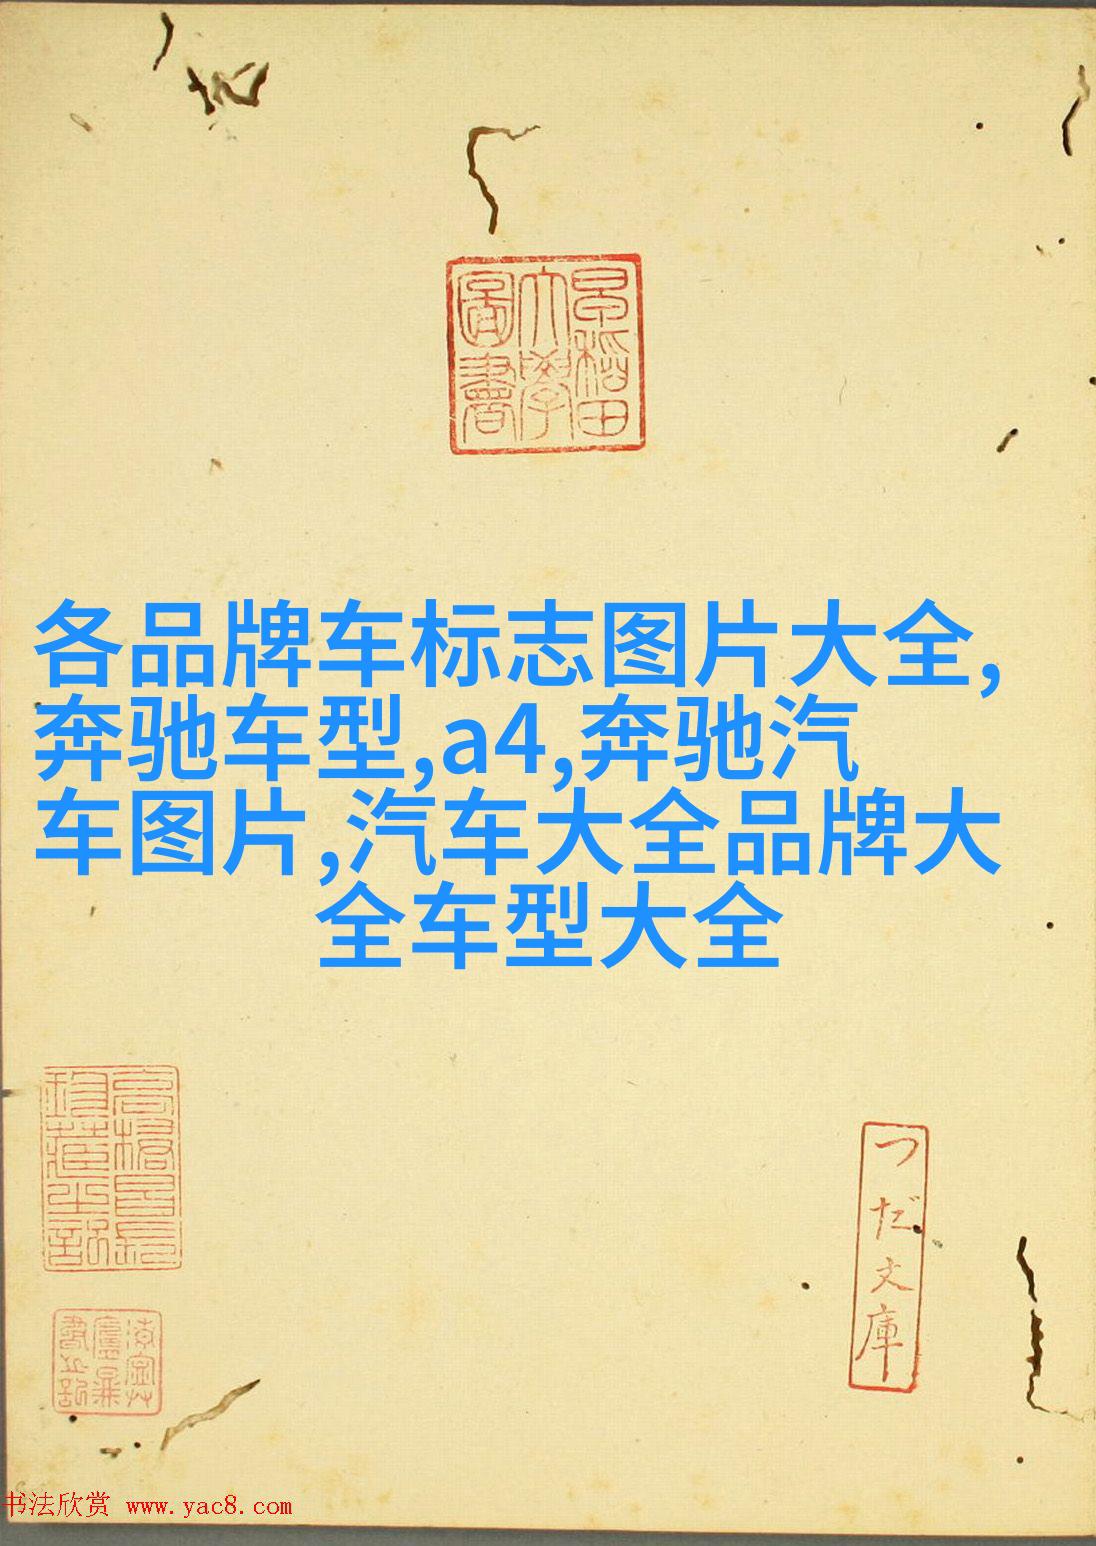 早稲田
大學
圖書
各品牌车标志图片大全,
奔驰车型,a4,奔驰汽
车图片,汽车大全品牌大
全车型大全
つだ文庫
书法欣赏 www.yac8.com